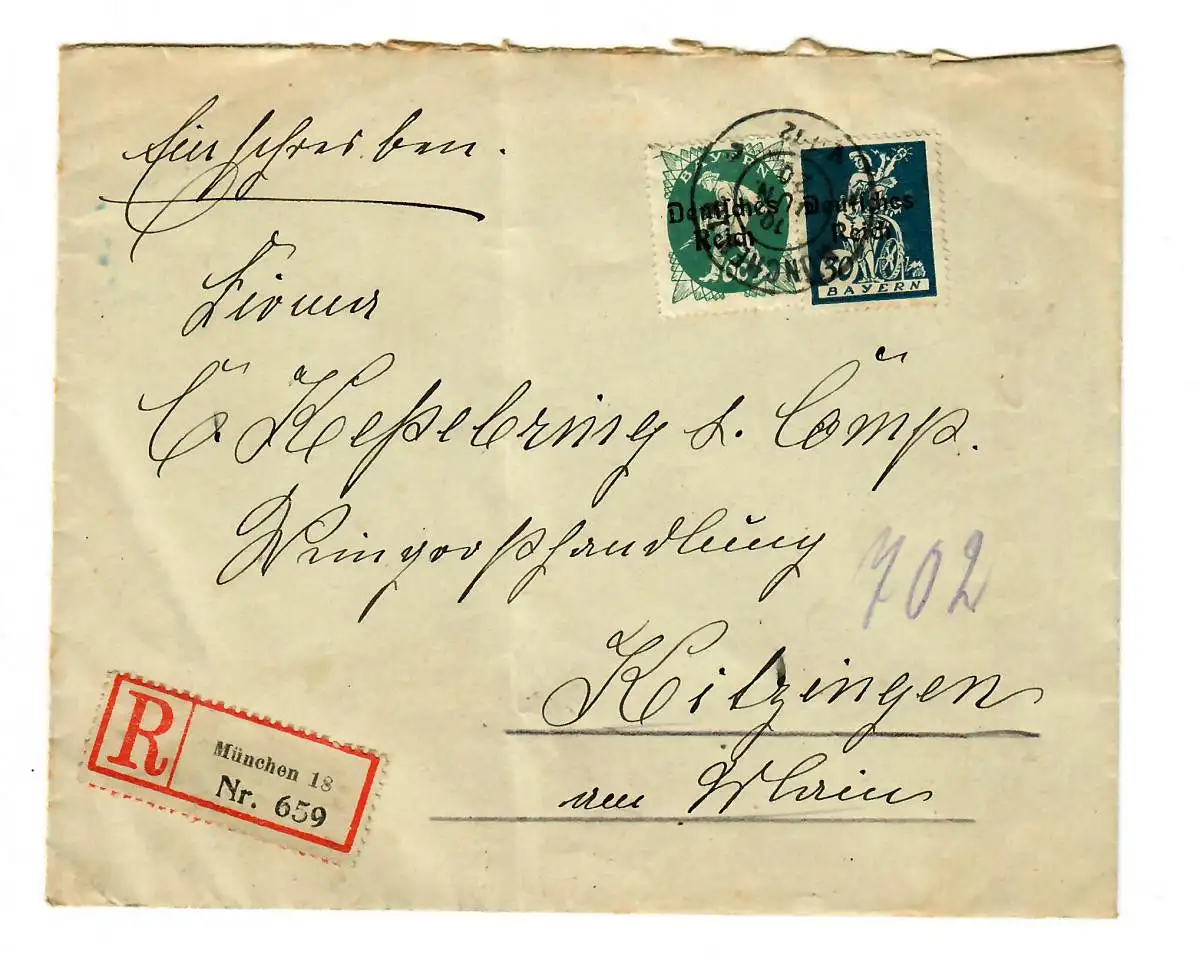 Einschreiben.
BAYERN
Deutsches
Reich
Deutsches
Reich
30
BAYERN
MÜNCHEN
Firma
C. Keßelbring & Comp.
Weingroßhandlung
702
Kitzingen
am Main
R
München 18
Nr. 659